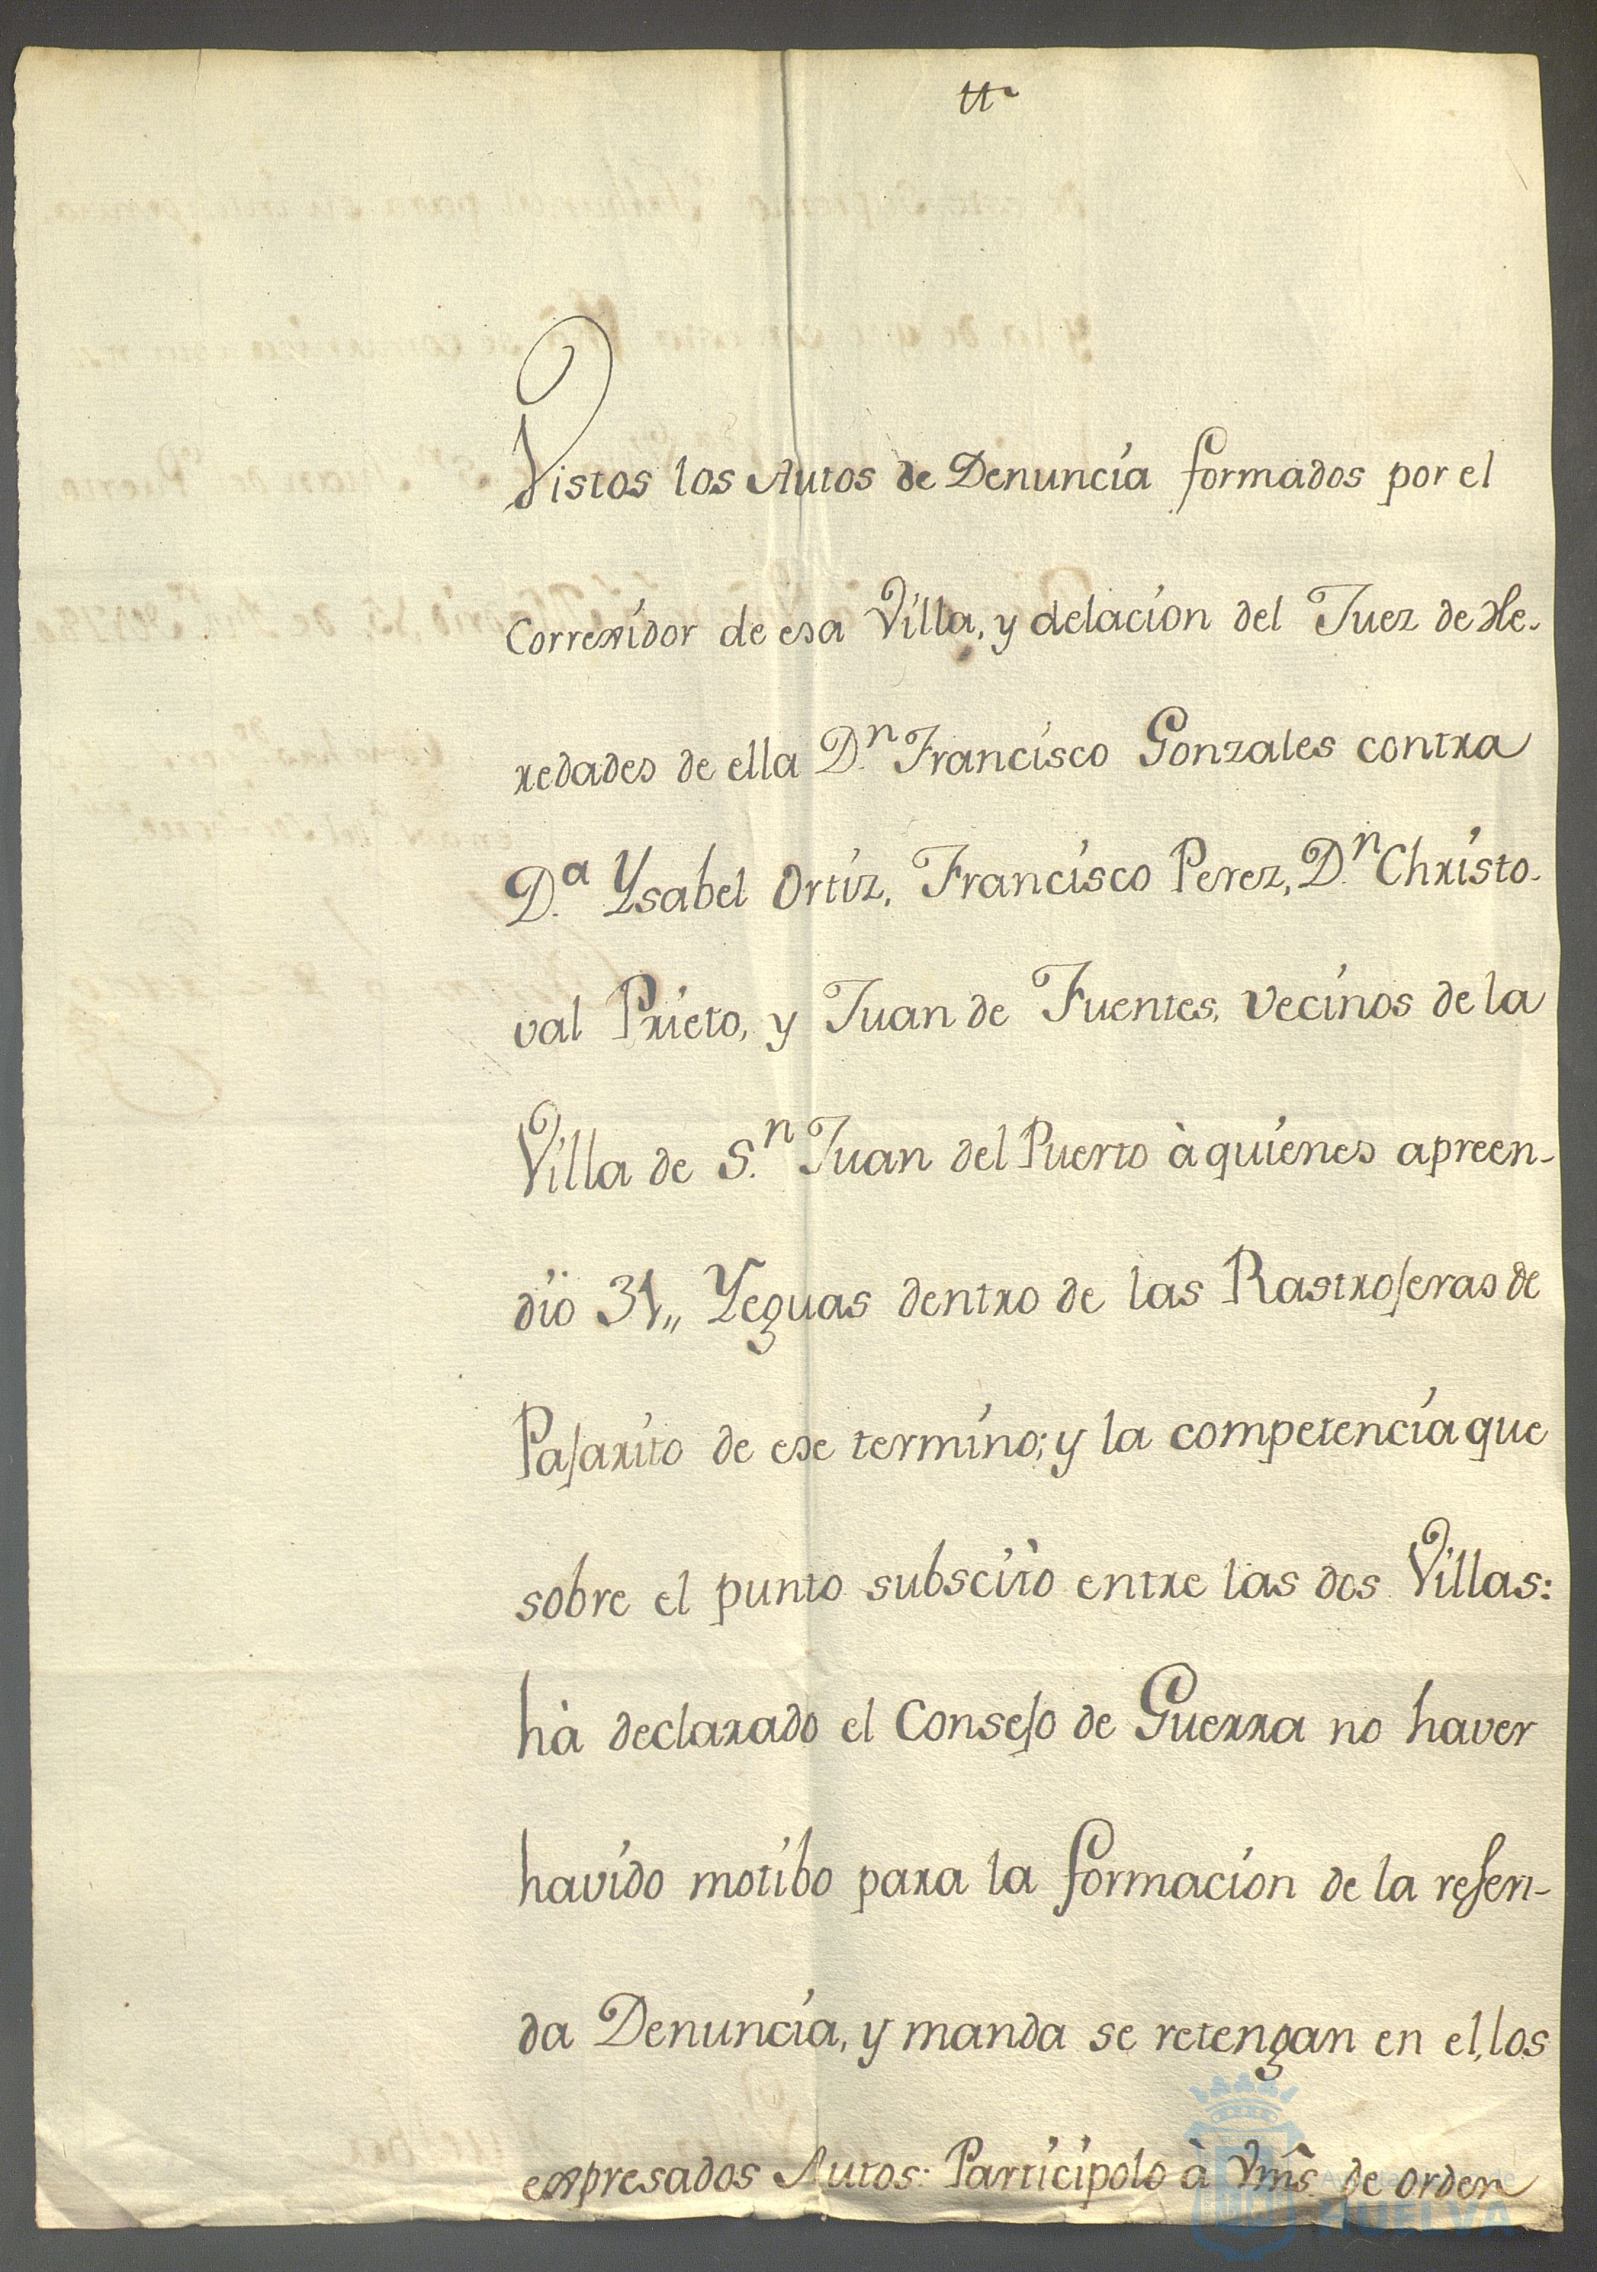 tt.
Vistos los Autos de Denuncía formados por el
Correxidor de esa Villa, y delacíon del Juez de He-
redades de ella D.n Francísco Gonzales contra
D.a Ysabel Ortíz, Francísco Perez, D.n Chrísto-
val Príeto, y Juan de Fuentes, vecínos de la
Villa de S.n Juan del Puerto à quíenes apreen-
dío 31,, Yeguas dentro de las Rastrojeras de
Pajaríto de ese termíno; y la competencía que
sobre el punto subscítò entre las dos Villas:
hà declarado el Consejo de Guerra no haver
havído motíbo para la formacíon de la referi-
da Denuncía, y manda se retengan en el, los
expresados Autos: Partícípolo à Vms. de orden
HUELVA